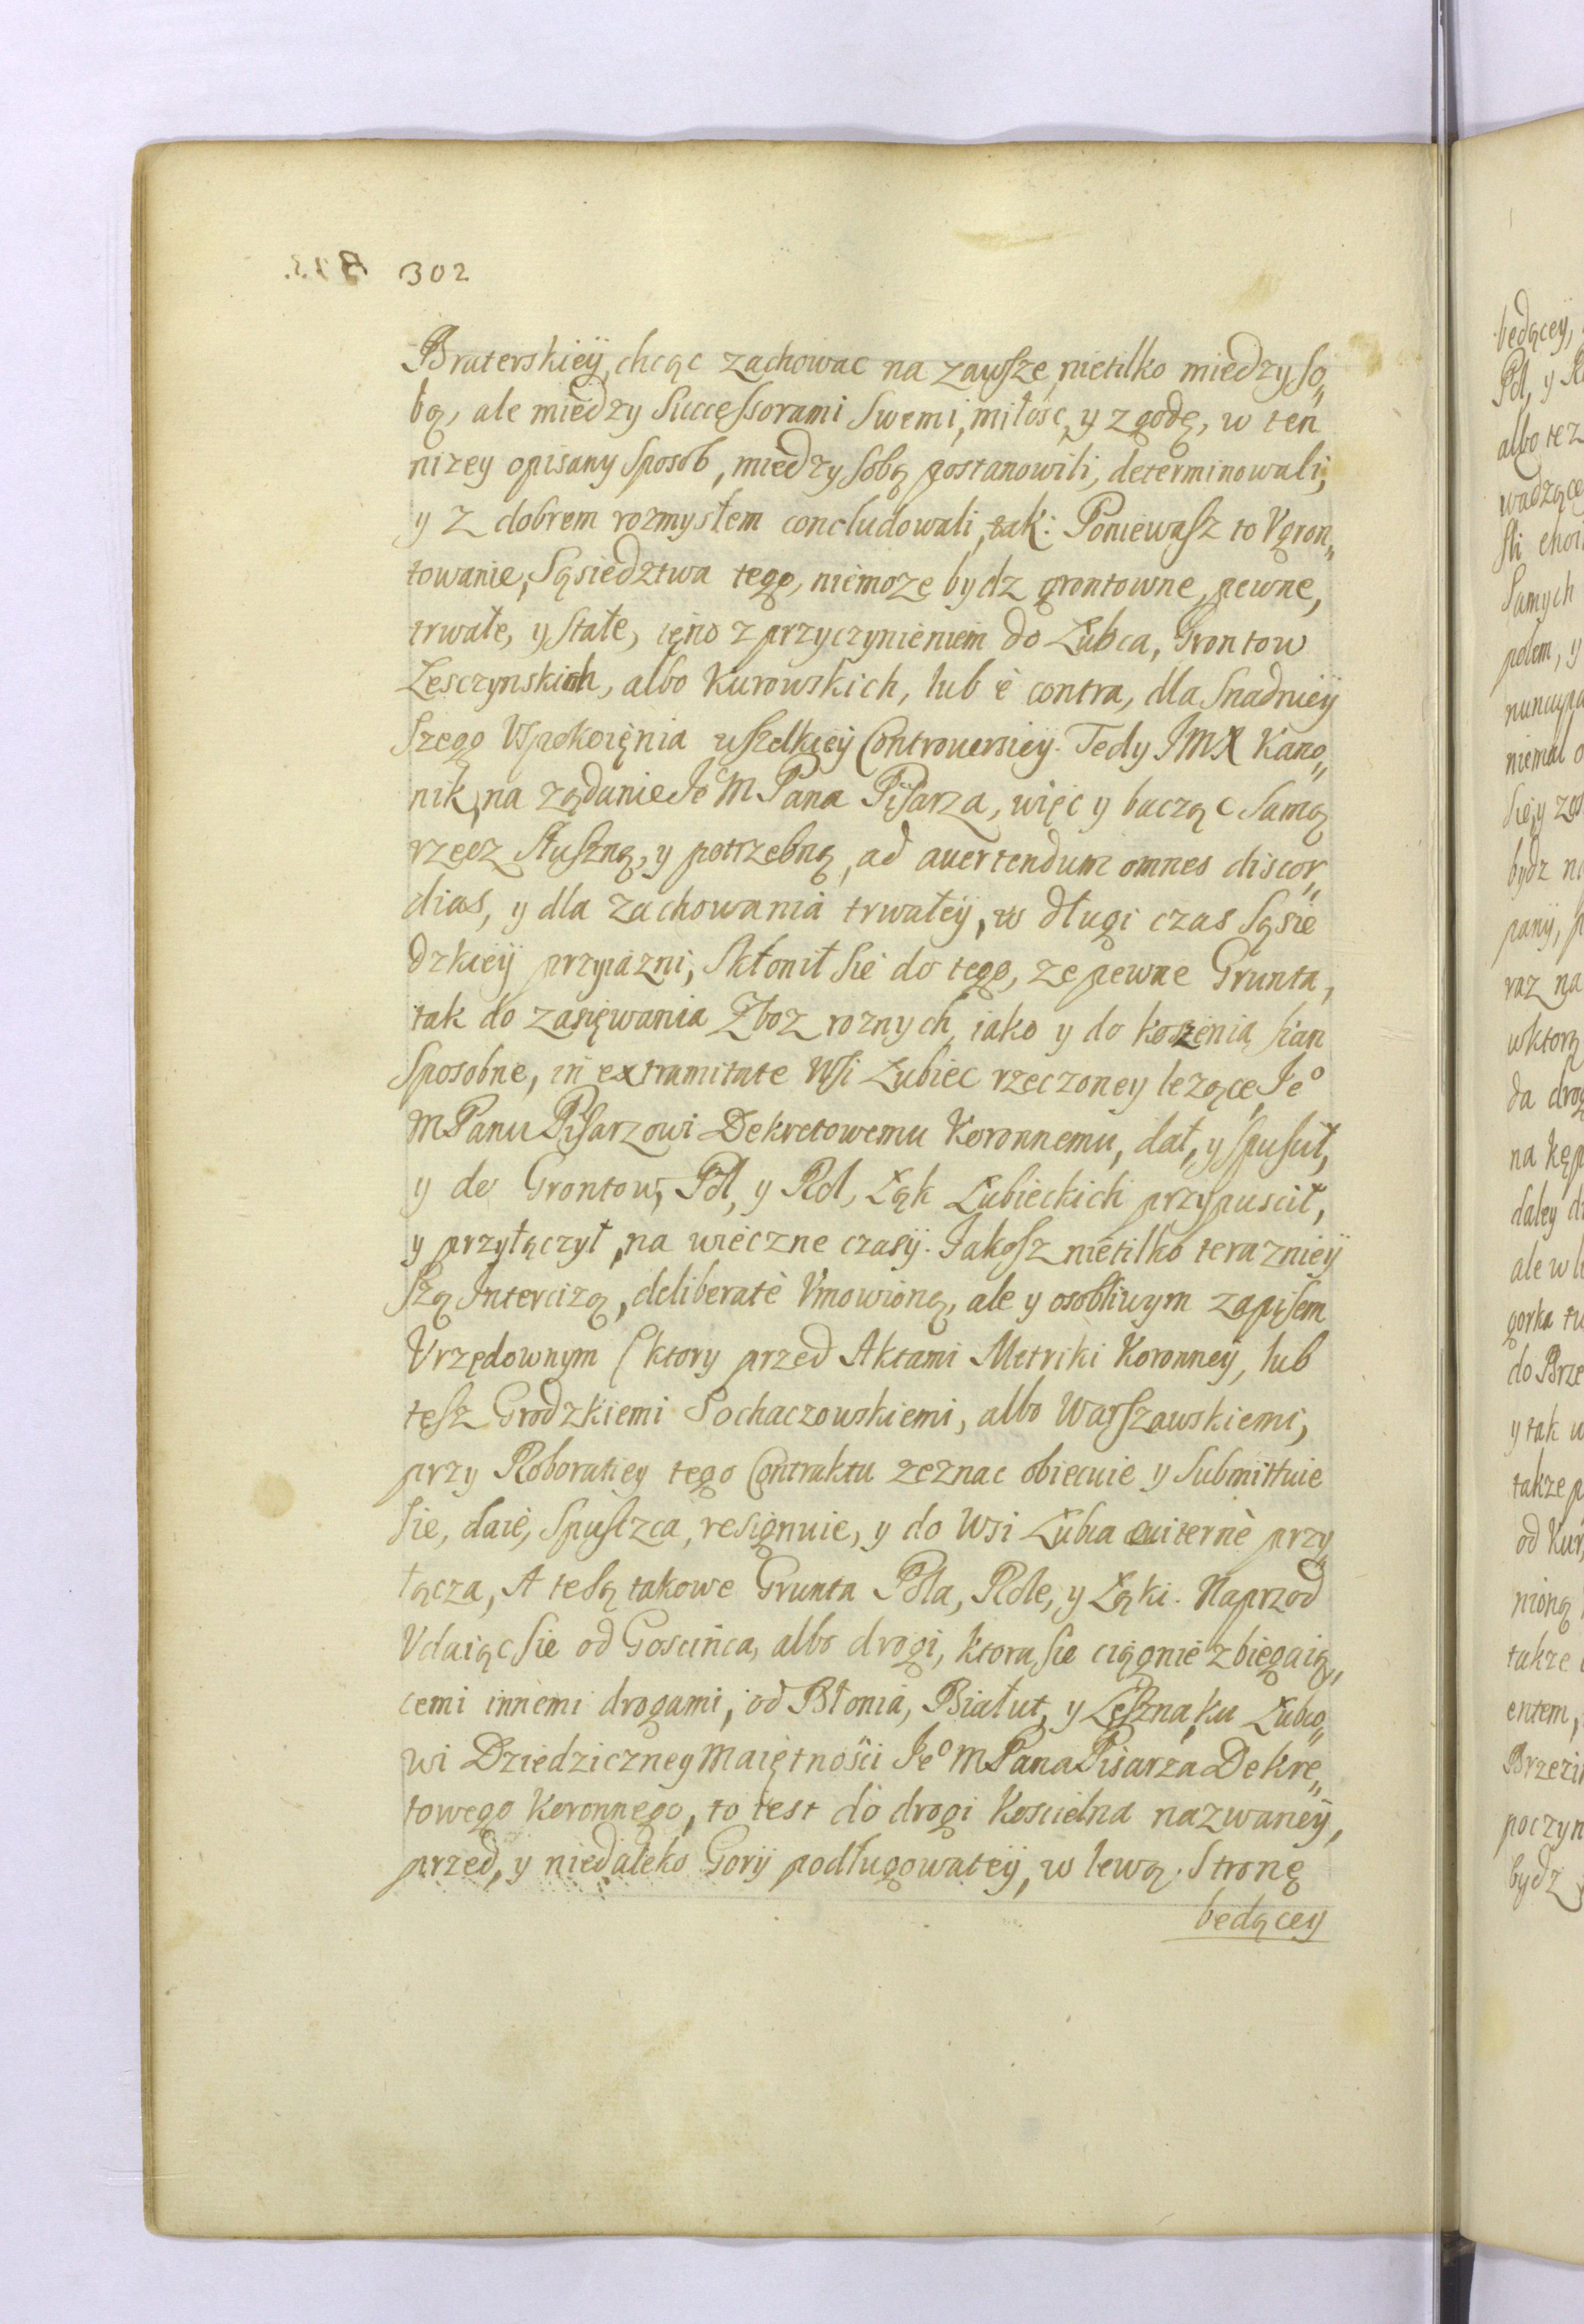 302
Braterskieÿ, chcąc zachowac na zawsze, nietilko miedzy so„
bą, ale miedzy Successorami Swemi, miłosc, y zgodę, w ten
nizey opisany sposob, miedzy sobą postanowili, determinowali,
y z dobrem rozmysłem concludowali, tak: Poniewasz to Vgron„
towanie, Sąsiedztwa tego, niemoze bydz grontowne, pewne,
trwałe, y stałe, ieno z przyczynieniem do Łubca, Grontow
Lesczynskich, albo Kurowskich, lub è contra, dla snadnieÿ
szego Vspokoięnia wszelkieÿ Controversieÿ. Tedy JMX Kano„
nik, na ządanie Jeᵒ M Pana Pisarza, więc y bacząc samą
rzecz słuszną, y potrzebną, ad avertendum omnes discor„
dias, y dla zachowania trwałeÿ, w długi czas Sąsie
dzkieÿ przyiazni, skłonił sie do tego, ze pewne Grunta,
tak do zasięwania Zboz roznych, iako y do koszenia sian
sposobne, in extramitate Wsi Łubiec rzeczoney lezące, Jeᵒ
M Panu Pisarzowi Dekretowemu Koronnemu, dał, y spuscił,
y do Grontow, Pol, y Rol, Łąk Łubieckich przypuscił,
y przyłączył, na wieczne czasÿ. Jakosz nietilko teraznieÿ
szą Intercizą, deliberatè Vmowioną, ale y osobliwym zapisem
Vrzędownym (ktory przed Aktami Metriki Koronneÿ, lub
tesz Grodzkiemi Sochaczowskiemi, albo Warszawskiemi,
przy Roboratiey tego Contraktu zeznac obiecuie y submittuie
sie, daie, spuszcza, resignuie, y do Wsi Łubca æviternè przy„
łącza, A te są takowe Grunta Pola, Role, y Łąki. Naprzod
Vdaiąc sie od Goscinca, albo drogi, ktora sie ciągnie z biegaią„
cemi innemi drogami, od Błonia, Białut, y Leszna, ku Łubco„
wi Dziedziczney Maiętnosci Jeᵒ M Pana Pisarza Dekre„
towego Koronnego, to iest do drogi Koscielna nazwaneÿ,
przed, y niedaleko Gorÿ podługowateÿ, w lewą stronę
bedącey
bedąceÿ,
Pol, y
albo tez
samych
polem, y
niemal
bydz
raz na
da
na
daley
ale
gorka
do
y tak
takze
od Kur
nioną
takze
entem,
poczyn
bydz